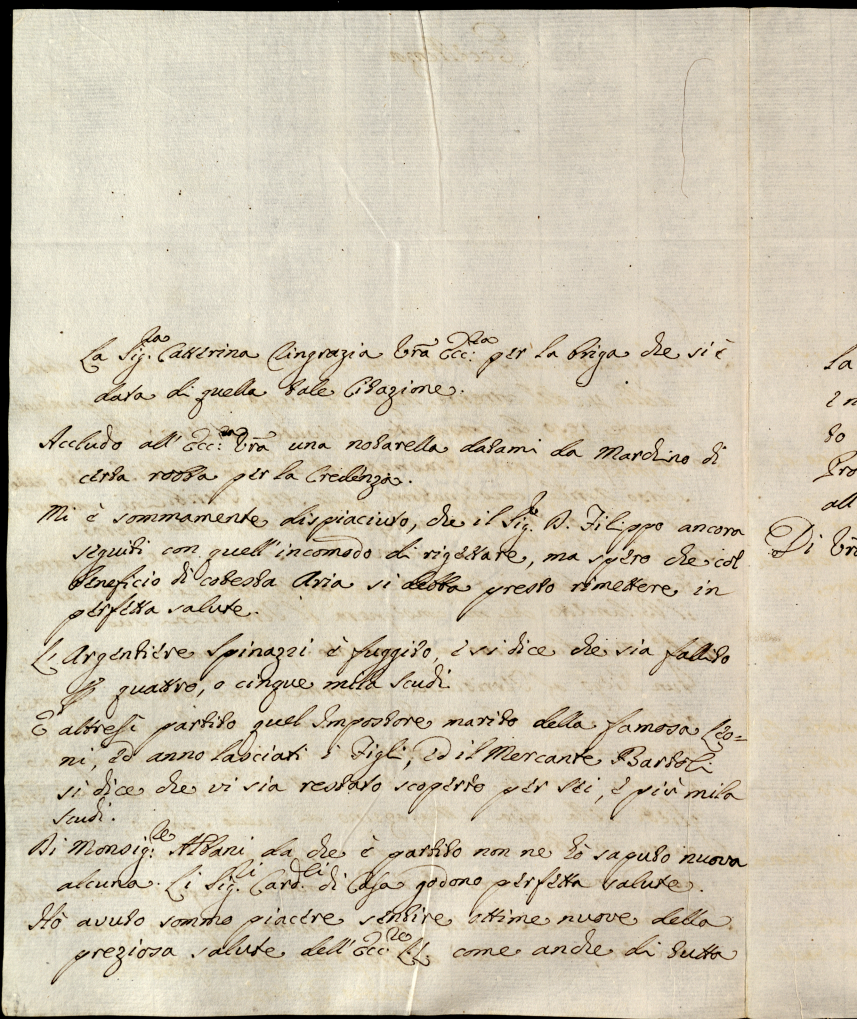 La Sig.ra Catterina ringrazia Vrã Ecc:za per la briga che si è
data di quella tale Citazione.
Accludo all'Ecc:za Vrã una notarella datami da Marchino di
certa robba per la Credenza.
Mi è sommamente dispiaciuto, che il Sig.re D. Filippo ancora
seguiti con quell'incomodo di rigettare, ma spero che col
beneficio di cotesta Aria si debba presto rimettere in
perfetta salute.
L'Argentiere Spinazzi è fuggito, e si dice che sia fallito
quattro, o cinque mila scudi.
È altresì partito quel Impostore marito della famosa Leo=
ni, ed anno lasciati i Figli, ed il Mercante Bartoli
si dice che vi sia restato scoperto per sei, e più mila
scudi.
Di Monsig:re Albani da che è partito non ne hò saputo nuova
alcuna. Li Sig.ri Card.li di Casa godono perfetta salute.
Hò avuto sommo piacere sentire ottime nuove della
preziosa salute dell'Ecc:ze LL. come anche di tutta
La
in
to
Pro
all
Di Vrã